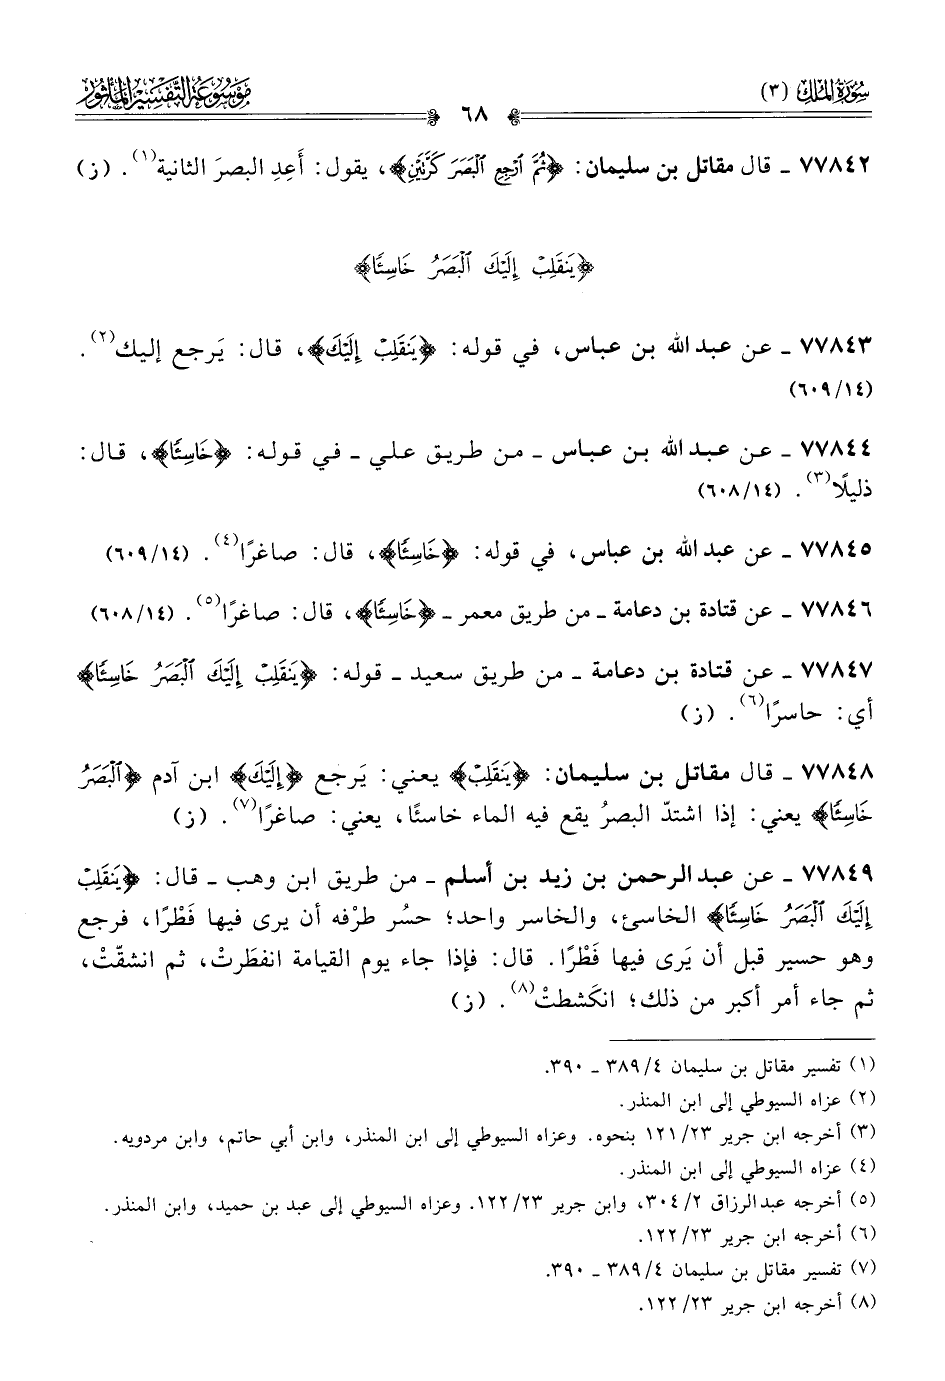 سُورَةُ المُلْكِ (٣)
٦٨
مَوْسُوعَةُ التَّفْسِيرِ المَأْثُورِ
٧٧٨٤٢ ـ قال مقاتل بن سليمان: ﴿ثُمَّ ٱرْجِعِ ٱلْبَصَرَ كَرَّتَيْنِ﴾، يقول: أَعِد البصرَ الثانية(١). (ز)
﴿يَنقَلِبْ إِلَيْكَ ٱلْبَصَرُ خَاسِئًا﴾
٧٧٨٤٣ ـ عن عبد الله بن عباس، في قوله: ﴿يَنقَلِبْ إِلَيْكَ﴾، قال: يَرجع إليك(٢).
(١٤/٦٠٩)
٧٧٨٤٤ ـ عن عبد الله بن عباس ـ من طريق علي ـ في قوله: ﴿خَاسِئًا﴾، قال:
ذليلًا(٣). (١٤/٦٠٨)
٧٧٨٤٥ ـ عن عبد الله بن عباس، في قوله: ﴿خَاسِئًا﴾، قال: صاغرًا(٤). (١٤/٦٠٩)
٧٧٨٤٦ ـ عن قتادة بن دعامة ـ من طريق معمر ـ ﴿خَاسِئًا﴾، قال: صاغرًا(٥). (١٤/٦٠٨)
٧٧٨٤٧ ـ عن قتادة بن دعامة ـ من طريق سعيد ـ قوله: ﴿يَنقَلِبْ إِلَيْكَ ٱلْبَصَرُ خَاسِئًا﴾
أي: حاسرًا(٦). (ز)
٧٧٨٤٨ ـ قال مقاتل بن سليمان: ﴿يَنقَلِبْ﴾ يعني: يَرجع ﴿إِلَيْكَ﴾ ابن آدم ﴿ٱلْبَصَرُ
خَاسِئًا﴾ يعني: إذا اشتدّ البصرُ يقع فيه الماء خاسئًا، يعني: صاغرًا(٧). (ز)
٧٧٨٤٩ ـ عن عبد الرحمن بن زيد بن أسلم ـ من طريق ابن وهب ـ قال: ﴿يَنقَلِبْ
إِلَيْكَ ٱلْبَصَرُ خَاسِئًا﴾ الخاسئ، والخاسر واحد؛ حسُر طرْفه أن يرى فيها فَطْرًا، فرجع
وهو حسير قبل أن يَرى فيها فَطْرًا. قال: فإذا جاء يوم القيامة انفطَرتْ، ثم انشقّتْ،
ثم جاء أمر أكبر من ذلك؛ انكَشطتْ(٨). (ز)
(١) تفسير مقاتل بن سليمان ٤/ ٣٨٩ ـ ٣٩٠.
(٢) عزاه السيوطي إلى ابن المنذر.
(٣) أخرجه ابن جرير ٢٣/ ١٢١ بنحوه. وعزاه السيوطي إلى ابن المنذر، وابن أبي حاتم، وابن مردويه.
(٤) عزاه السيوطي إلى ابن المنذر.
(٥) أخرجه عبد الرزاق ٢/ ٣٠٤، وابن جرير ٢٣/ ١٢٢. وعزاه السيوطي إلى عبد بن حميد، وابن المنذر.
(٦) أخرجه ابن جرير ٢٣/ ١٢٢.
(٧) تفسير مقاتل بن سليمان ٤/ ٣٨٩ ـ ٣٩٠.
(٨) أخرجه ابن جرير ٢٣/ ١٢٢.